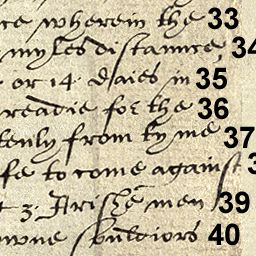 ce wherein the 33
myles distaunce, 34
or 14 daies in 35
readie for the 36
from tyme 37
fe to come against 3
t 3. Arishe men 39
owne souldiors 40